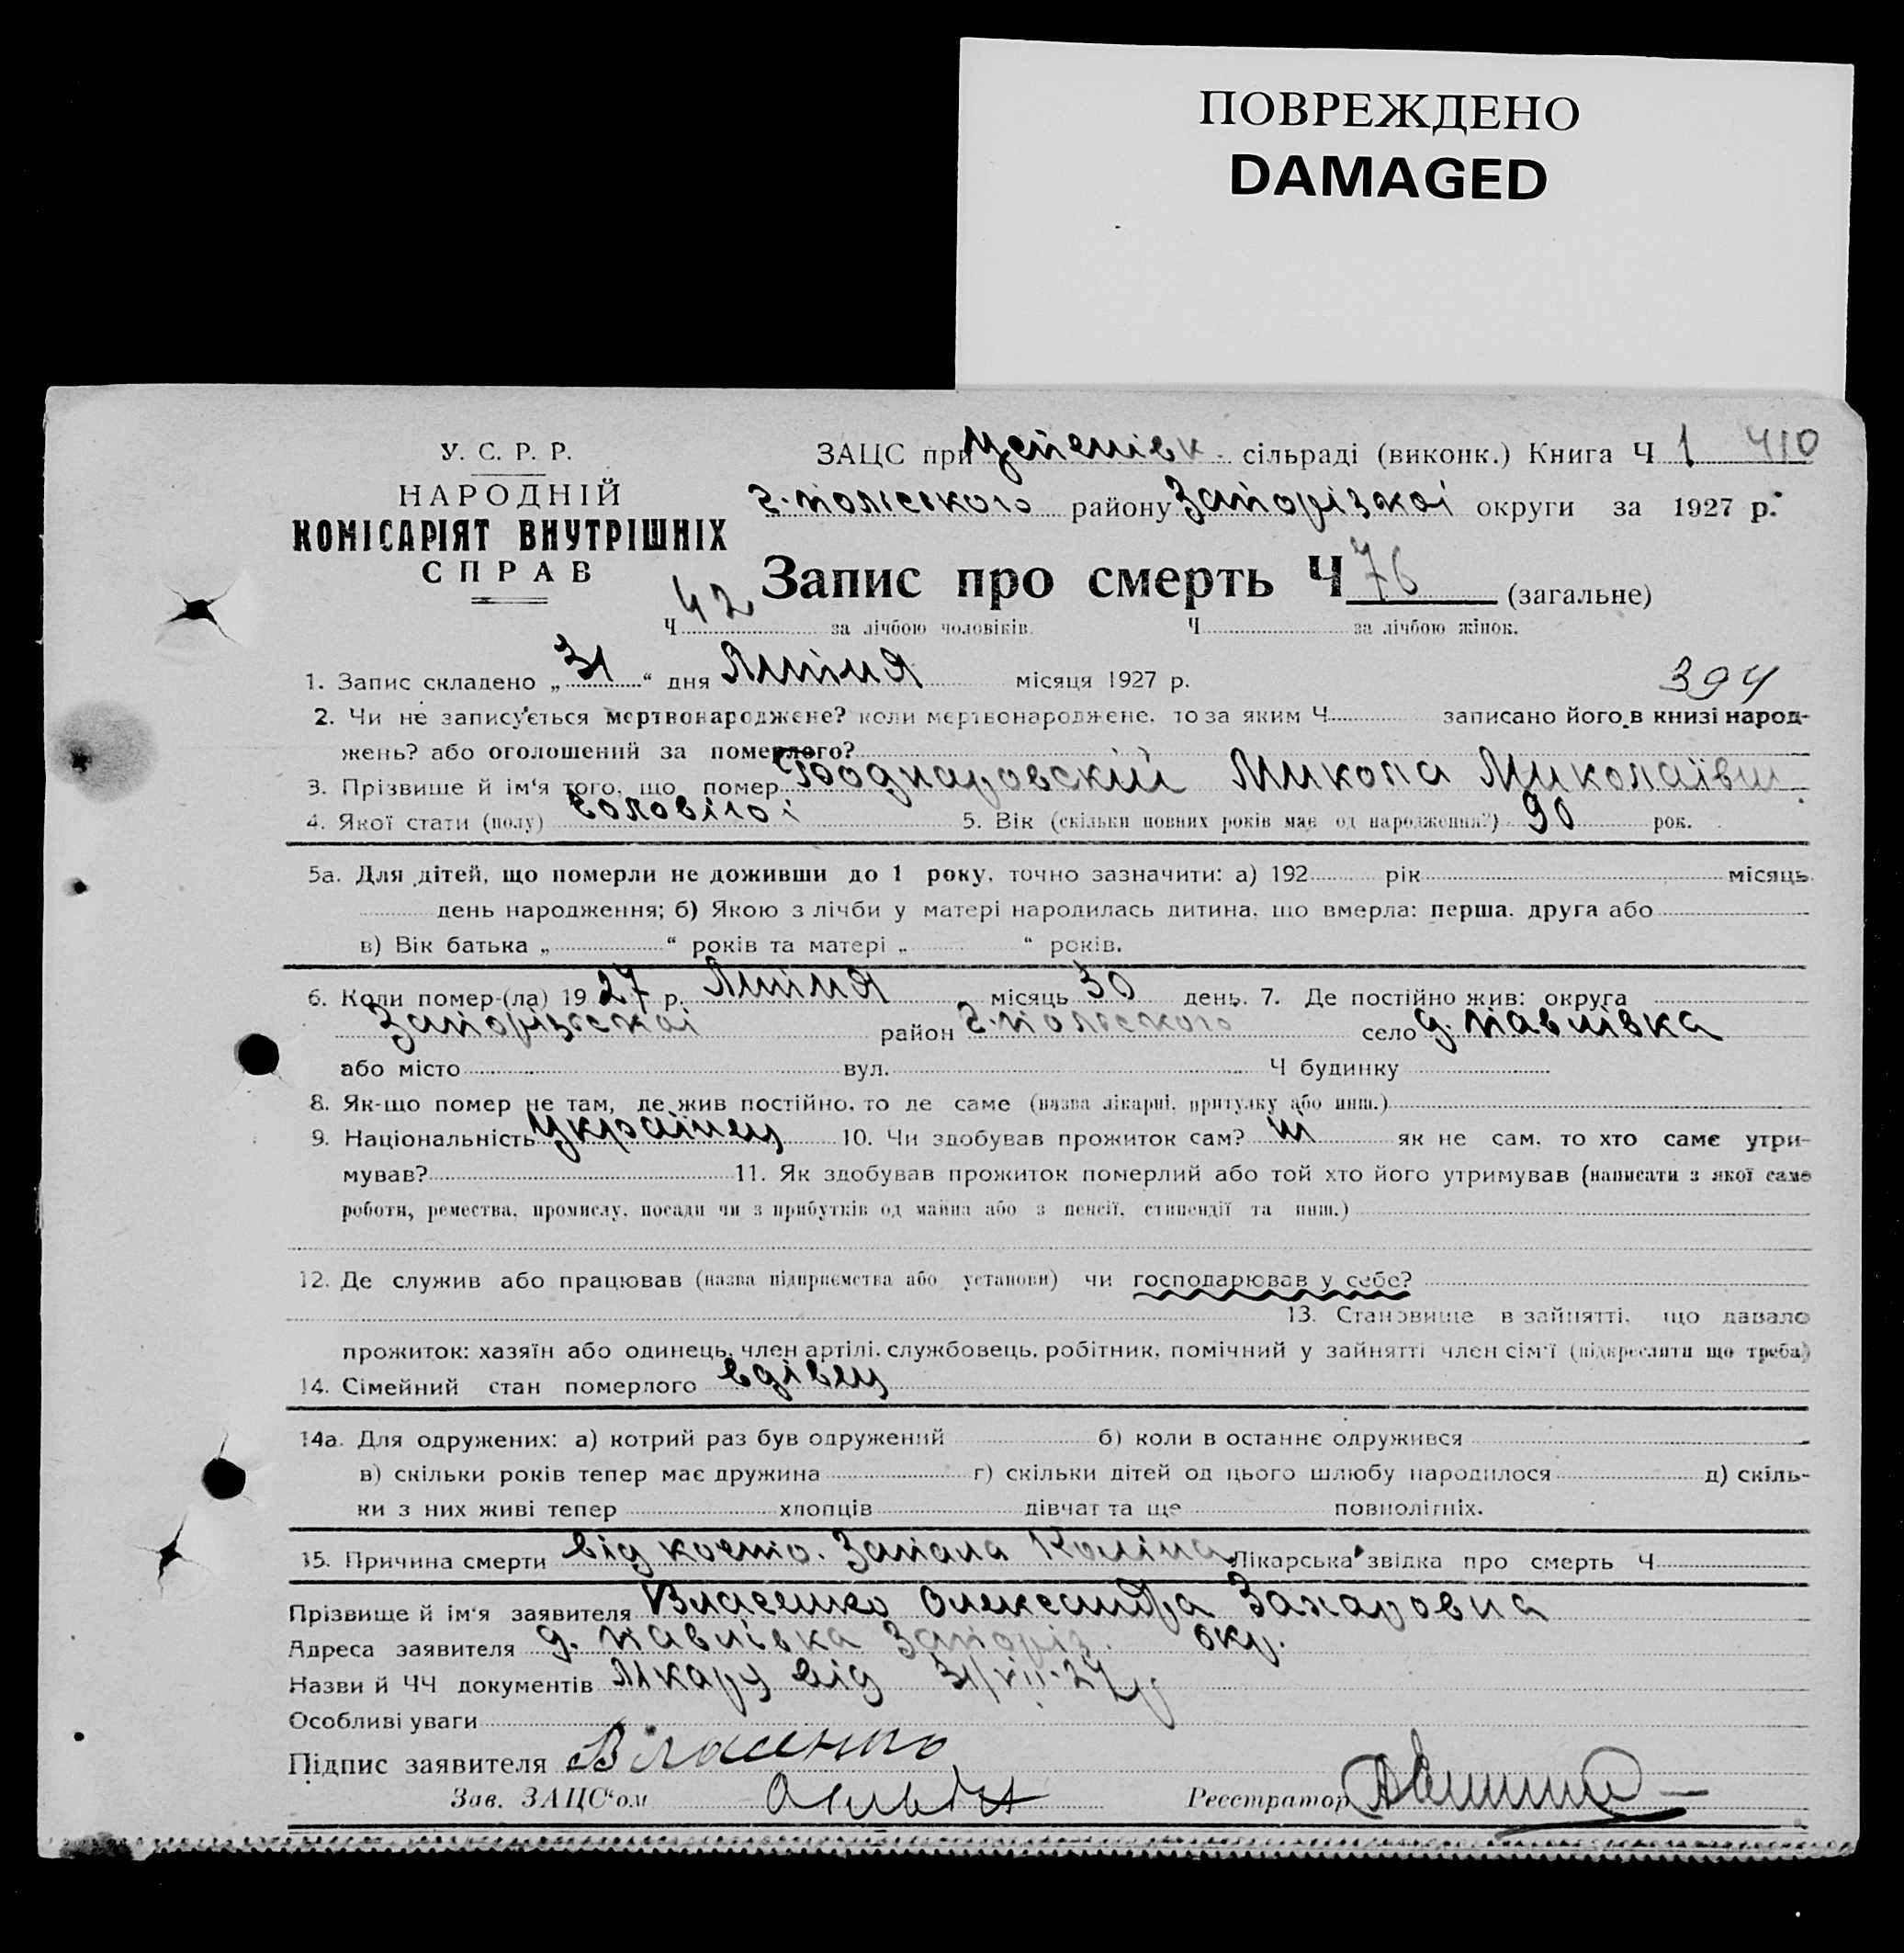 ПОВРЕЖДЕНО
DAMAGED
У. С. Р. Р.
НАРОДНІЙ
КОМІСАРІЯТ ВНУТРІШНІХ
СПРАВ
ЗАЦС при Успенівк. сільраді (виконк.) Книга Ч 1 410
г.-польського району Запорізкоі округи за 1927 р.
Запис про смерть Ч 76 (загальне)
Ч 42 за лічбою чоловіків. Ч за лічбою жінок.
1. Запис складено „31“ дня Липня місяця 1927 р. 394
2. Чи не записується мертвонароджене? коли мертвонароджене, то за яким Ч записано його в книзі народ-
жень? або оголошений за померлого?
3. Прізвище й ім'я того, що помер Боднаровскій Микола Миколаївич
4. Якої стати (полу) чоловічоі 5. Вік (скільки повних років має од народження?) 90 рок.
5а. Для дітей, що померли не доживши до 1 року, точно зазначити: а) 192 рік місяць
день народження; б) Якою з лічби у матері народилась дитина, що вмерла: перша, друга або
в) Вік батька „ “ років та матері „ “ років.
6. Коли помер-(ла) 1927 р. Липня місяць 30 день. 7. Де постійно жив: округа
Запорізськоі район г.-польського село д. Павлівка
або місто вул. Ч будинку
8. Як-що помер не там, де жив постійно, то де саме (назва лікарні, притулку або инш.)
9. Національність українец 10. Чи здобував прожиток сам? ні як не сам, то хто саме утри-
мував? 11. Як здобував прожиток померлий або той хто його утримував (написати з якої саме
роботи, ремества, промислу, посади чи з прибутків од майна або з пенсії, стипендії та инш.)
12. Де служив або працював (назва підприємства або установи) чи господарював у себе?
13. Становище в зайнятті, що давало
прожиток: хазяїн або одинець, член артілі, службовець, робітник, помічний у зайнятті член сім'ї (підкреслити що треба)
14. Сімейний стан померлого вдівец
14а. Для одружених: а) котрий раз був одружений б) коли в останнє одружився
в) скільки років тепер має дружина г) скільки дітей од цього шлюбу народилося д) скіль-
ки з них живі тепер хлопців дівчат та ще повнолітніх.
15. Причина смерти від костно. Запала Коліна Лікарська звідка про смерть Ч
Прізвище й ім'я заявителя Власенко Олександра Захаровна
Адреса заявителя д. Павлівка Запоріз. окр.
Назви й ЧЧ документів Лікару від 31/VII-27 р
Особливі уваги
Підпис заявителя Власенко
Зав. ЗАЦС'ом
Реєстратор